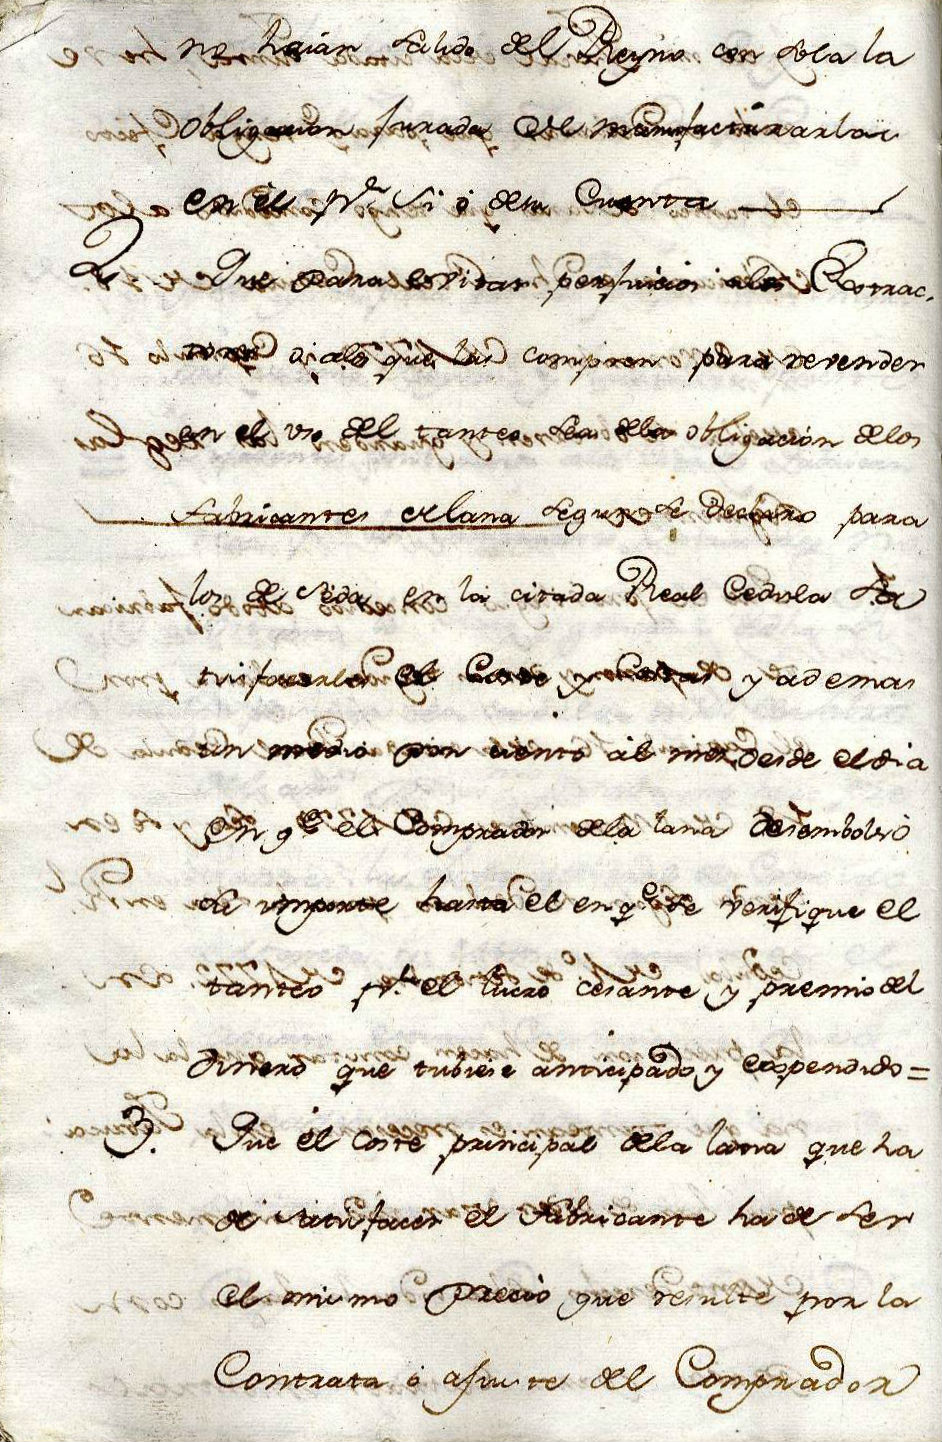 no haian salido del Reyno con sola la
obligacion jurada de manufacturarlas
en el pr. Si ó desu Cuenta
2 Que para evitar perjuicios alos Extrac-
tores ó alos que las compren para revender
en el uso del tanteo sea dela obligación delos
fabricantes de lana segun se declaró para
los de Seda en la citada Real Cedula Sa
tisfacerles el Coste y Costas y ademas
un medio por ciento al mes desde el dia
en qe el Comprador dela lana desembolsó
su importe hasta el en qe se verifique el
tanteo pr. el lucro cesante y premio del
dinero que tubiese anticipado y expendido=
3. Que el coste principal dela lana que ha
de satisfacer el fabricante ha de ser
el mismo precio que resulte por la
Contrata ó ajuste del Comprador